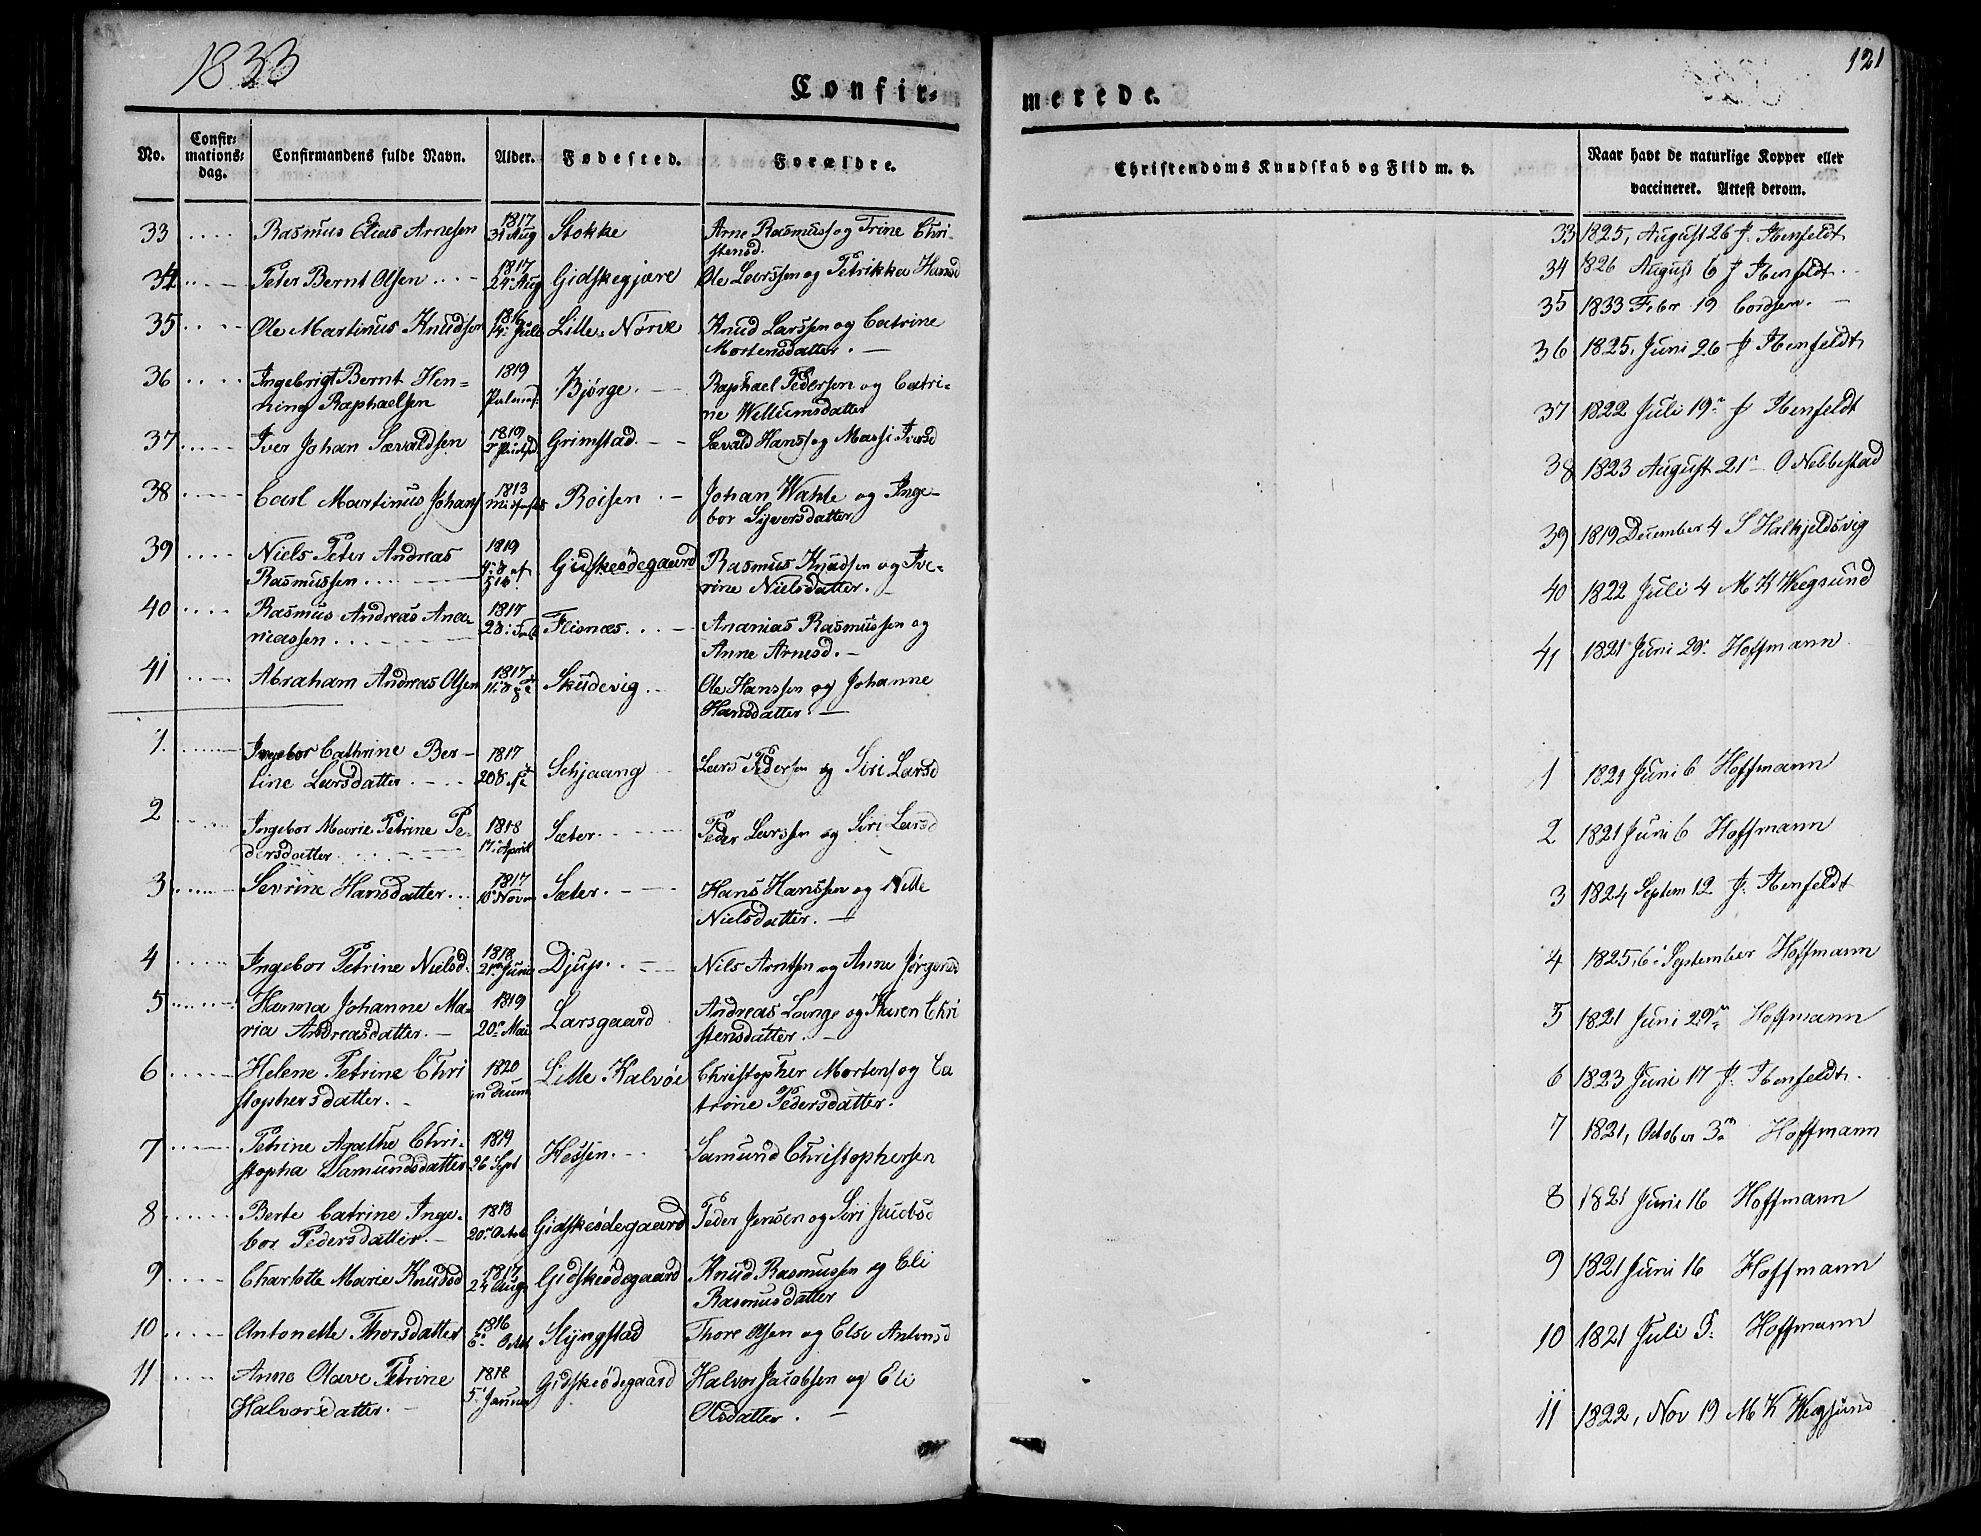 1833
121
Confir-
merede.
No. Confir-mations-dag. Confirmandens fulde Navn. Alder. Fødested. Forældre.
Christendoms Kundskab og Flid m. v.
Naar havt de naturlige Kopper eller
vaccineret. Attest derom.
33 Rasmus Elias Arnesen 1817 31 Aug Stokke Arne Rasmuss og Trine Chri-
stensd.
34 Peter Bernt Olsen 1817 24 Aug Gidskegjære Ole Larssen og Petrikka Hansd
35 Ole Martinus Knudsen 1816 14 Juli Lille Nørve Knud Larssen og Catrine
Mortensdatter.
36 Ingebrigt Bernt Hen- 1819 Bjørge Raphael Pedersen og Catri-
ning Raphaelsen ne Willumsdatter
37 Iver Johan Sævaldsen 1819 Grimstad Sævald Hanss og Massi Iversd
38 Carl Martinus Johans 1813 Roisen Johan Wahle og Inge-
bor Syversdatter
39 Niels Peter Andreas 1819 Gidskeødegaard Rasmus Knudsen og Ive-
Rasmussen rine Nielsdatter.
40 Rasmus Andreas Ana- 1817 Flisnæs Ananias Rasmussen og
niassen Anne Arnesd.
41 Abraham Andreas Olsen 1817 Skudevig Ole Hanssen og Johanne
Hansdatter.
1 Ingebor Cathrine Ber- 1817 Schjaang Lars Pedersen og Siri Larsd
tine Larsdatter
2 Ingebor Marie Petrine Pe- 1818 17 April Sæter Peder Larssen og Siri Larsd
dersdatter
3 Sevrine Hansdatter 1817 Novm Sæter Hans Hanssen og Nille
Nielsdatter.
4 Ingebor Petrine Nielsd. 1818 21 Juni Djup Nils Arntsen og Anne Jørgensd
5 Hanna Johanne Ma- 1819 20 Mai Larsgaard Andreas Lange og Karen Chri
ria Andreasdatter. stensdatter.
6 Helene Petrine Chri 1820 Lille Kalvøe Christopher Mortens og Ca
stophersdatter. trine Pedersdatter.
7 Petrine Agathe Chri- 1819 26 Sept Hessen Samund Christophersen
stopha Samundsdatter
8 Berte Catrine Inge- 1818 20 Octob Gidskeødegaard Peder Jensen og Siri Jacobsd
bor Pedersdatter.
9 Charlotte Marie Knudsd 1817 24 Aug Gidskeødegaard Knud Rasmussen og Eli
Rasmusdatter
10 Antonette Thorsdatter 1816 6 Oct Slyngstad Thore Olsen og Else Antonsd
11 Anne Olave Petrine 1818 5 Januar Gidskeødegaard Halvor Jacobsen og Eli
Halvorsdatter. Olsdatter.
33 1825, August 26 J. Ibenfeldt
34 1826 August 6 J Ibenfeldt
35 1833 Febr 19 Cordsen.
36 1825, Juni 26 J Ibenfeldt
37 1822 Juli 19 J Ibenfeldt
38 1823 August 21 O Nebbestad
39 1819 December 4 S Halkjeldsvig
40 1822 Juli 4 M K Wegsund
41 1821 Juni 29 Hoffmann
1 1821 Juni 6 Hoffmann
2 1821 Juni 6 Hoffmann
3 1824 Septem 12 J. Ibenfeldt
4 1825, 6 September Hoffmann
5 1821 Juni 29 Hoffmann
6 1823 Juni 17 J. Ibenfeldt.
7 1821, October 3 Hoffmann
8 1821 Juni 16 Hoffmann
9 1821 Juni 16 Hoffmann
10 1821 Juli Hoffmann
11 1822, Nov 19 M K Wegsund